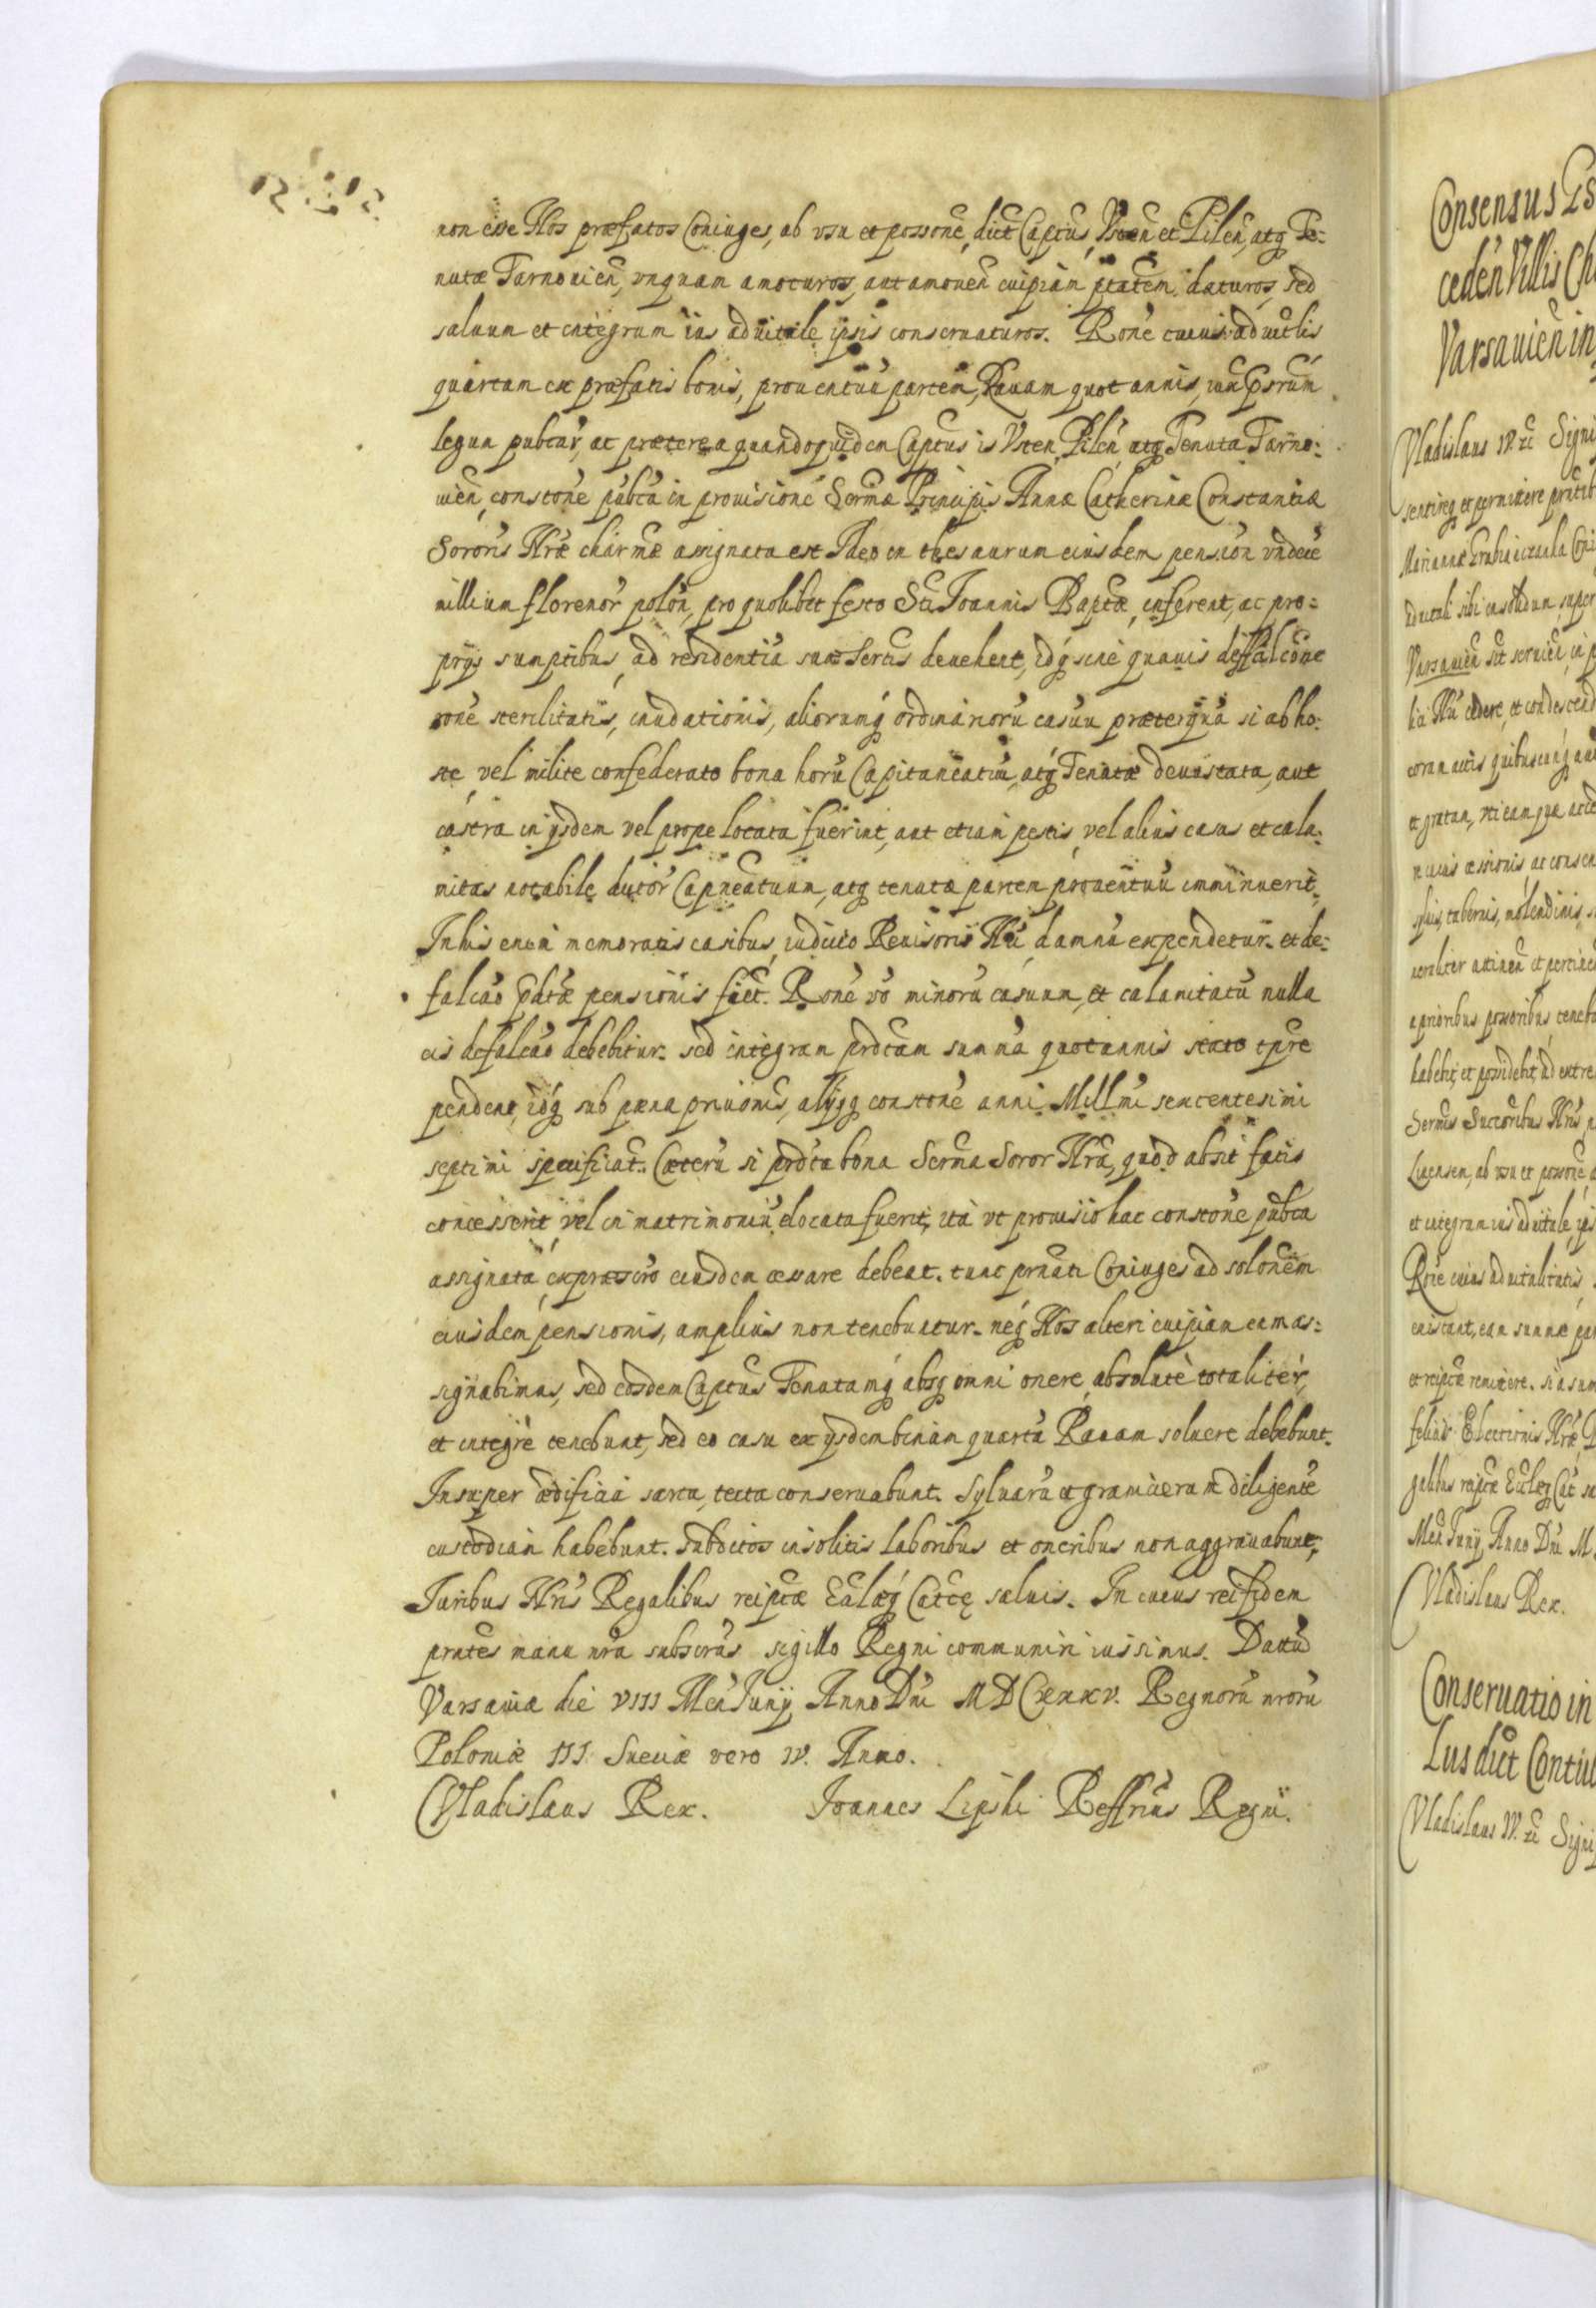 non esse Nos præfatos Coniuges, ab vsu et possone, dict Captus, Vsten et Pilen, atq Te:
nutæ Tarnouien, vnquam amoturos, aut amouen cuipiam ptatem daturos, sed
saluum et integrum ius aduitale ipsis conseruaturos. Rone cuius aduitlis
quartam ex præfatis bonis, prouentuu partem, Rauam quot annis, iux psrum
legum pubcar, ac præterea quandoquidem Captus is Vsten, Pilen, atq Tenuta Tarno:
uien, constone pubca in prouisione Sermæ Principis Annæ Catherinæ Constantiæ
Sororis Nræ charmæ assignata est Ideo in thesaurum eiusdem pension vndecē
millium florenor polon, pro quolibet festo Sti Joannis Baptæ, inferent, ac pro:
prijs sumptibus, ad residentiā suæ Sertis deuehent, idq sine quauis deffalcone
rone sterilitatis, inudationis, aliorumq ordinarioru casuu præterqua si ab ho:
ste, vel milite confederato bona horu Capitaneatiu, atq Tenutæ deuastata, aut
castra in ijsdem vel prope locata fuerint, aut etiam pestis, vel alius casus et cala:
mitas notabile dictor Capneatuum, atq tenutæ partem prouentuu imminuerit,
In his enim memoratis casibus, iudicio Reuisoris Nri damna expendetur. et de:
falcao pdtæ pensionis fiet. Rone vo minoru casuum, et calamitatu nulla
eis defalcao debebitur. sed integram prdtam summa quotannis stato tpre
pendent, idq sub pæna priuonis, alijsq constone anni Millmi sexcentesimi
septimi specificat. Cæteru si prdta bona Serma Soror Nra, quod absit fatis
concesserit, vel in matrimoniu elocata fuerit, ita vt prouisio hac constone pubca
assignata, expræscro eiusdem cessare debeat. tunc prnati Coniuges ad solonem
eiusdem pensionis, amplius non tenebuntur. neq Nos alteri cuipiam eam as:
signabimus, sed eosdem Captus Tenutamq absq omni onere, absolutè totaliter,
et integrè tenebunt, sed eo casu ex ijsdem binam quartā Rauam soluere debebunt.
Insuper ædificia sarta, tecta conseruabunt. Syluarū et graniciarum diligentē
custodiam habebunt. Subditos insolitis laboribus et oneribus non aggrauabunt,
Juribus Nris Regalibus reiptæ Ecalæq Catcę saluis. In cuius rei fidem
prntes manu nra subscras sigillo Regni communiri iussimus. Dattū
Varsauia die VIII Men Junij Anno Dni MDCXXXV. Regnorū nrorū
Poloniæ III. Sueciæ vero IV. Anno.
Vladislaus Rex. Joannes Lipski Reffrius Regni.
Consensus
ceden Villis
Varsauien in
Vladislaus IV. etc
sentireq et permittere
Varsauien
et gratam, vti eamque
syluis, tabernis, molendinis
a prioribus possoribus
habebit, et possidebit, ad
ab vsu et possone
et integrum ius aduitale
Rone cuius aduitalitatis
felicis Electionis Nræ
Men Junij Anno Dni M
Vladislaus Rex.
Conseruatio in
Vladislaus IV. etc